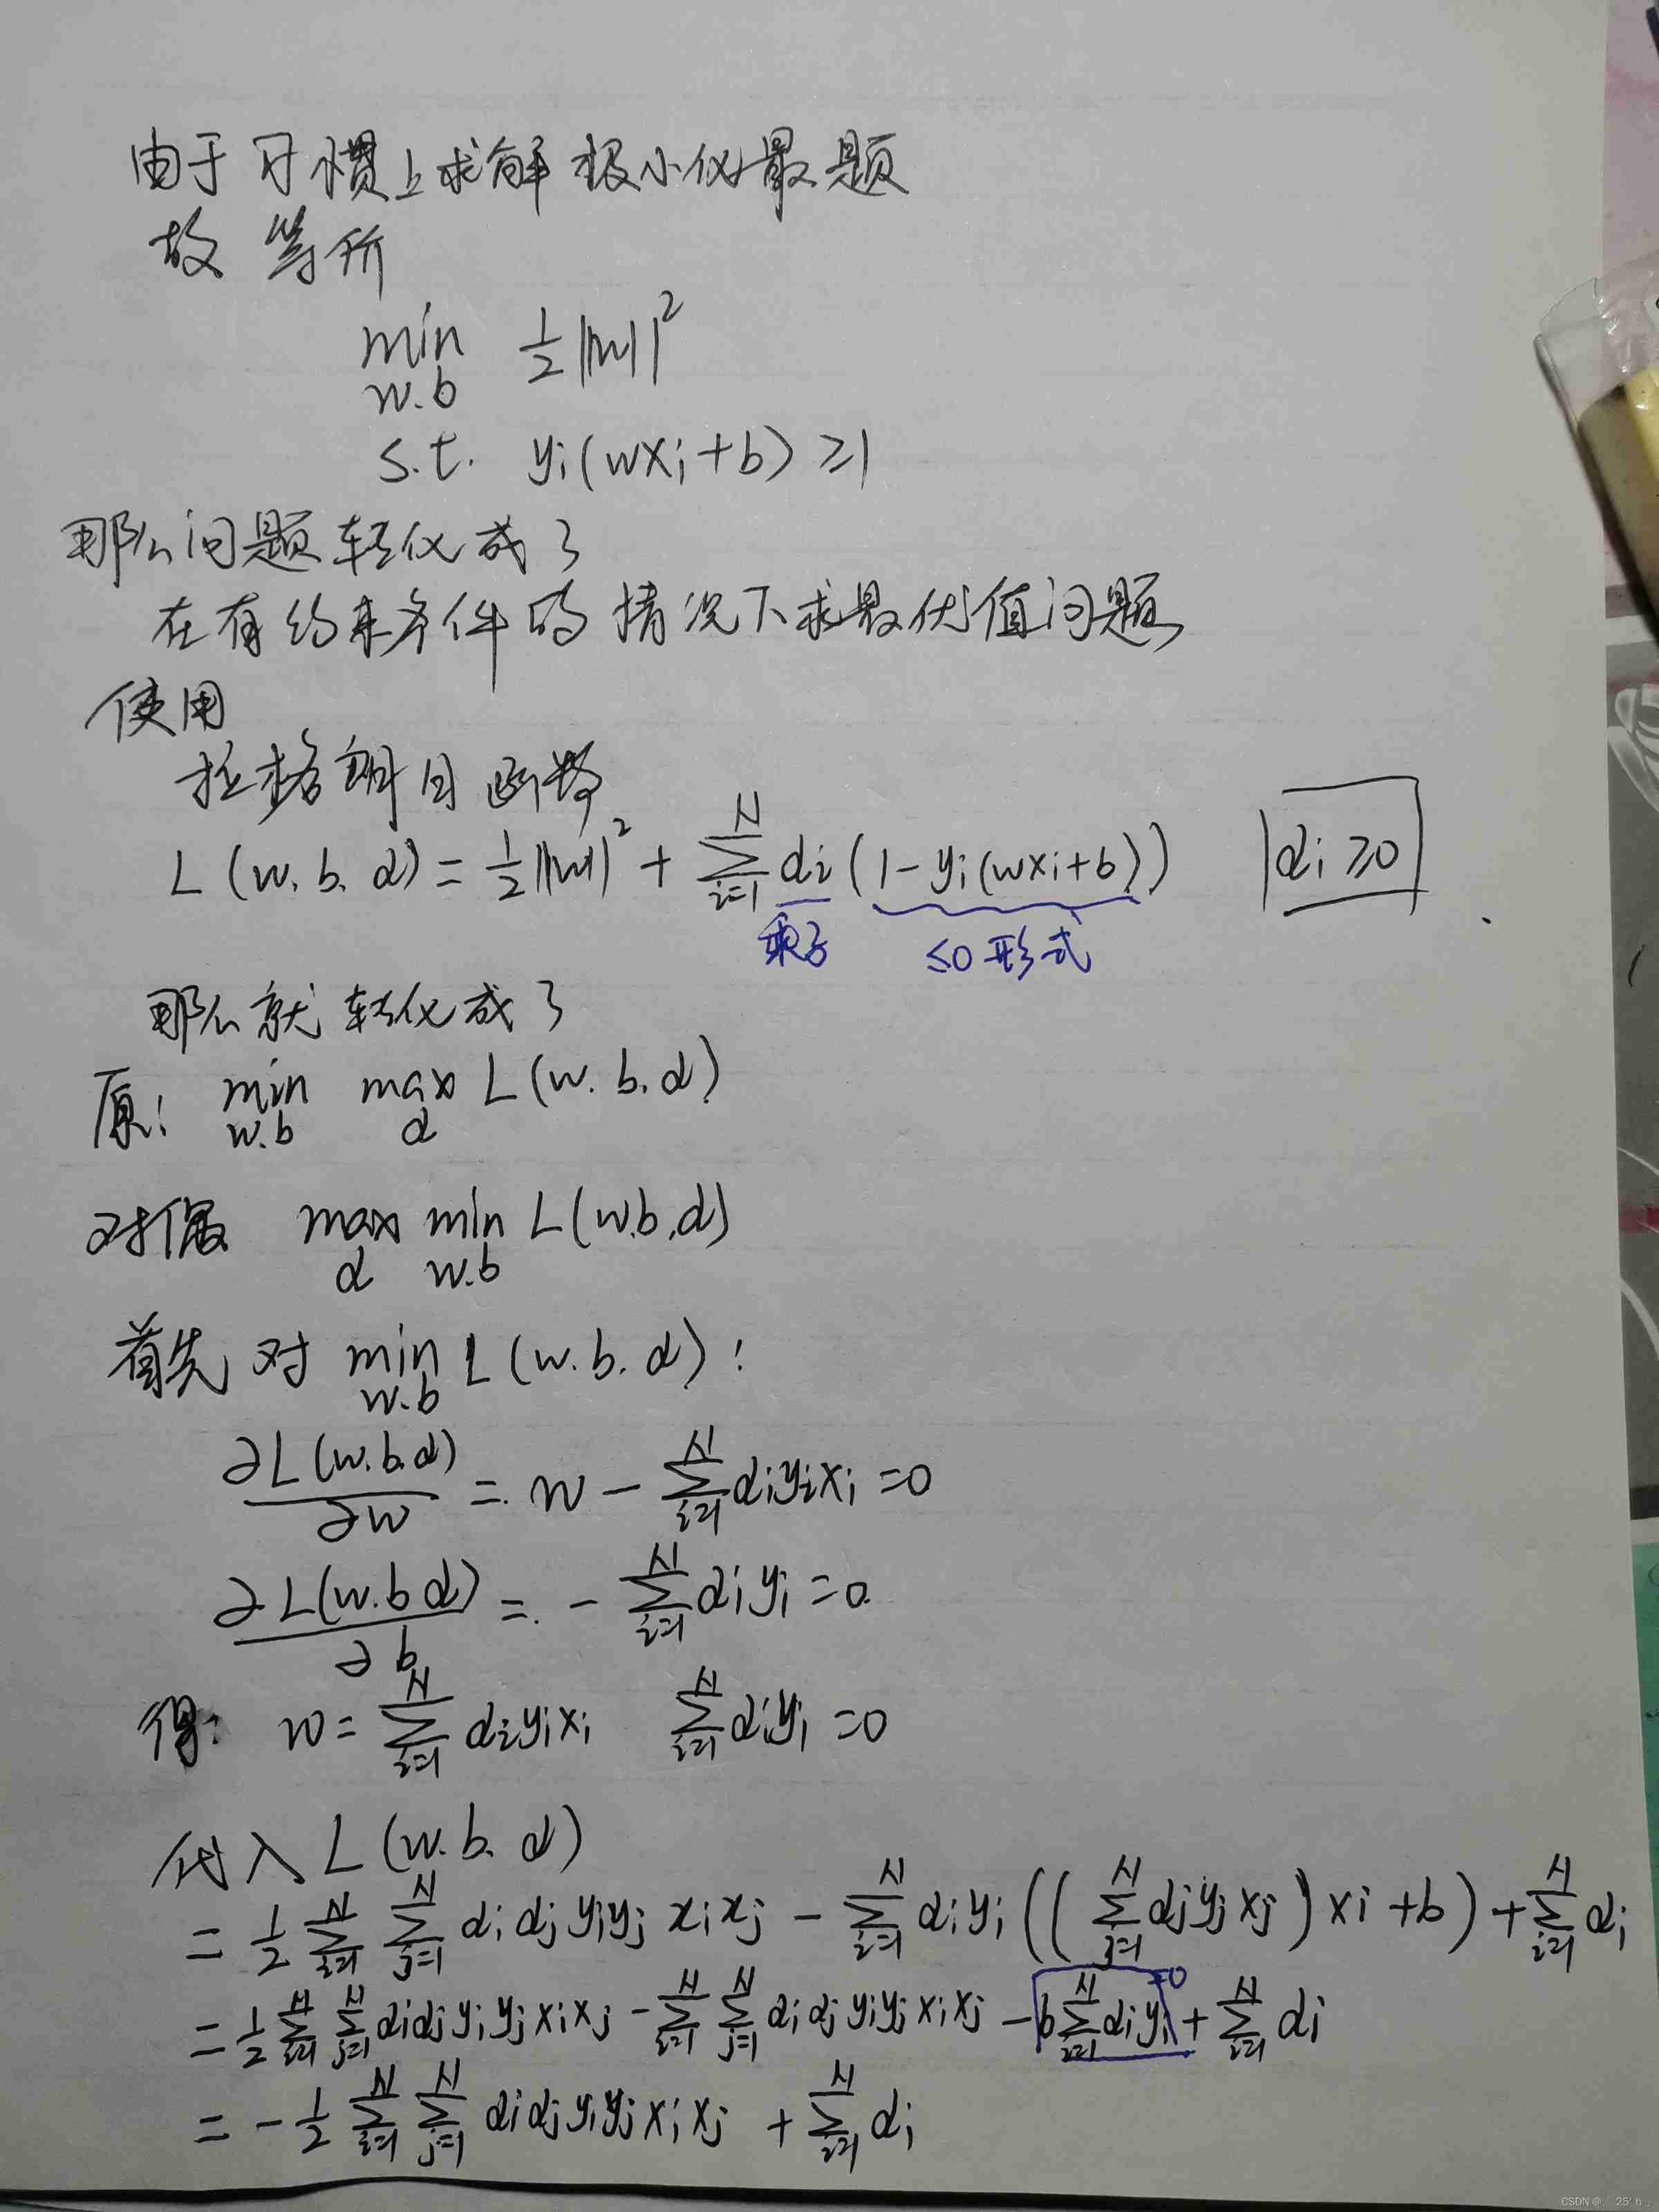 由于习惯上求解极小化最题
故等价
min 1/2||w||²
w.b
s.t. yi(wxi+b)≥1
那么问题转化成了
在有约束条件的情况下求最优值问题
使用
拉格朗日函数
L(w.b.α)=1/2||w||²+∑_{i=1}^{N}αi(1-yi(wxi+b)) αi≥0
乘子 ≤0形式
那么就转化成了
原: min max L(w.b.α)
w.b α
对偶 max min L(w.b.α)
α w.b
首先对 min L(w.b.α):
w.b
∂L(w.b.α)/∂w = w-∑_{i=1}^{N}αiyixi=0
∂L(w.b α)/∂b = -∑_{i=1}^{N}αiyi=0
得: w=∑_{i=1}^{N}αiyixi ∑_{i=1}^{N}αiyi=0
代入L(w.b.α)
=1/2∑_{i=1}^{N}∑_{j=1}^{N}αiαjyiyjxixj-∑_{i=1}^{N}αiyi((∑_{j=1}^{N}αjyjxj)xi+b)+∑_{i=1}^{N}αi
=1/2∑_{i=1}^{N}∑_{j=1}^{N}αiαjyiyjxixj-∑_{i=1}^{N}∑_{j=1}^{N}αiαjyiyjxixj-b∑_{i=1}^{N}αiyi+∑_{i=1}^{N}αi
=0
=-1/2∑_{i=1}^{N}∑_{j=1}^{N}αiαjyiyjxixj+∑_{i=1}^{N}αi
CSDN @「25' h」